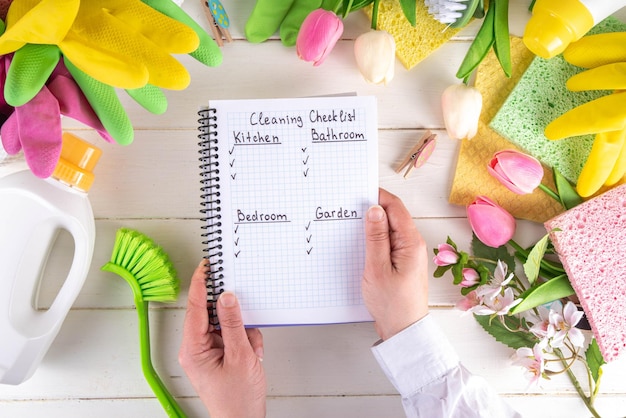 Cleaning Checklist
Kitchen Bathroom
✓ ✓
✓ ✓
✓ ✓
Bedroom Garden
✓ ✓
✓ ✓
✓ ✓